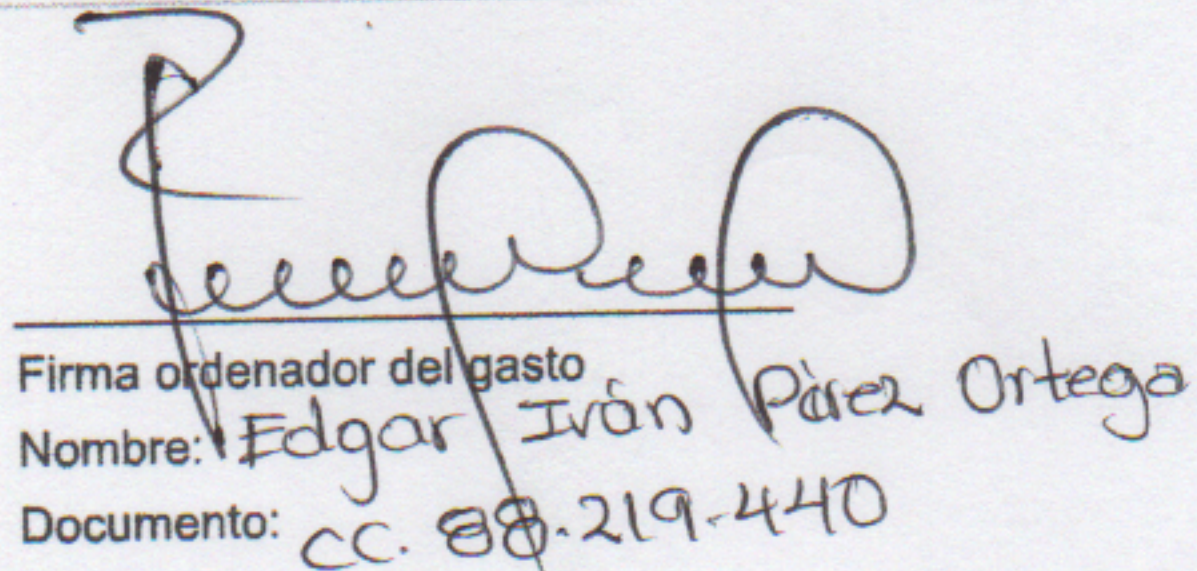 Firma ordenador del gasto
Nombre: Edgar Iván Pàrez Ortega
Documento: CC. 88.219.440